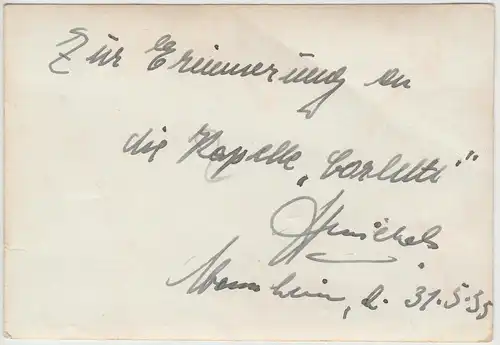 Zur Erinnerung an
die Kapelle „Carletti"
Mannheim, d. 31.5.35